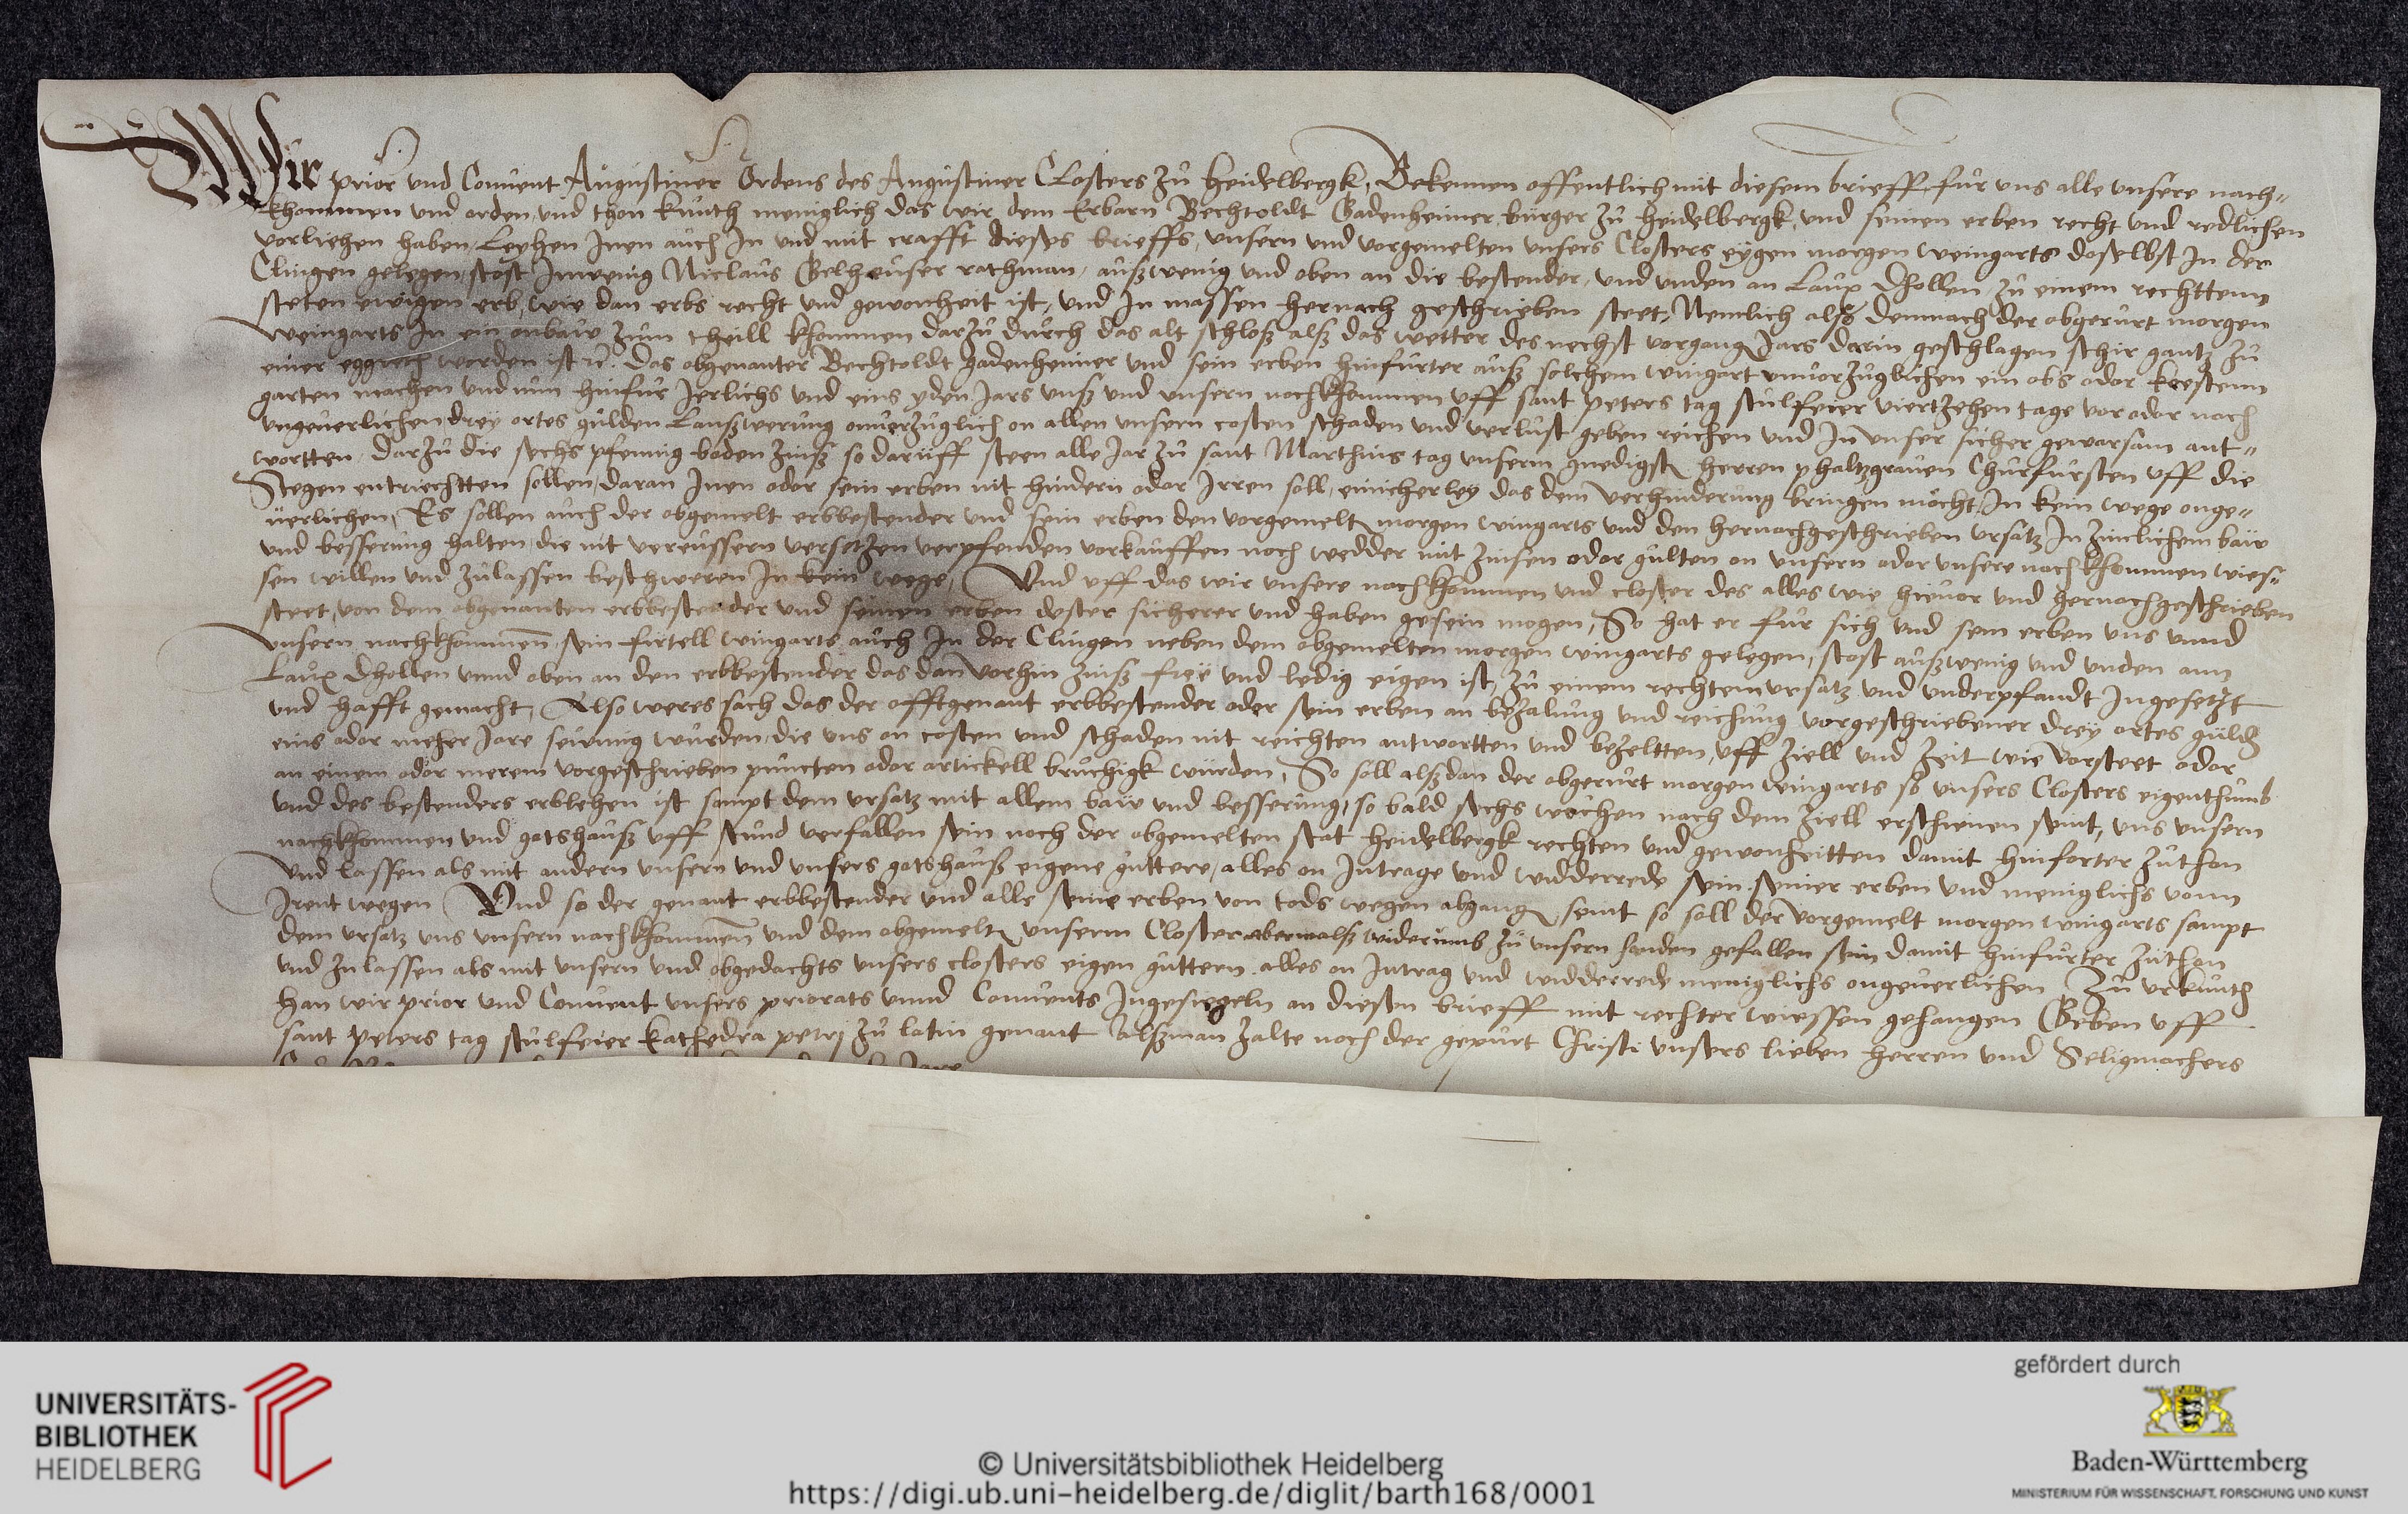 Wir prior und Conuent Augustiner Ordens des Augustiner Closters zu Heidelbergk, Bekennen offentlich mit diesem brieff, fur uns alle unsere nach=
khommen und orden, und thon kunth meniglich das wir dem Erbarn Bechtoldt Gadenheimer burger zu Heidelbergk, und seinen erben recht und redlichen
verliehen haben, Leyhen Inen auch In und mit crafft dieses brieffs, unsern und vorgemelten unsers Closters eygen morgen weingarts doselbst In der
Clingen gelegen, stost Inwenig Niclaus Gelheuser rathman, außwenig und oben an die bestender, und unden an Laux Dhollen zu einem rechttem
steten ewigen erb, wie dan erbs recht und gewonheit ist, und In massen hernach geschrieben steet, Nemlich also demnach der obgerurt morgen
weingarts In ein onbaw zum theill khommen darzu durch das alt schloß alß das wetter des nechst vorgang Jars darin geschlagen schir gantz zu
einer worden ist rc. das obgenanter Bechtoldt gadenheimer und sein erben hinfurter auß solchem wingart unuorzuglichen ein obs oder kestenn
garten machen und nun hinfur Jerlichs und eins yden Jars unß und unsern nachkhommen uff sant peters tag stulfeier viertzehen tage vor oder nach
ungeuerlichen drey ortes gulden Lanßwerung onuerzuglich on allen unsern costen schaden und verlust geben reichen und In unser sicher gewarsam ant=
wortten, darzu die sechs pfennig boden zinß so daruff steen alle Jar zu sant Marthins tag unserm gnedigst herren phaltzgrauen Churfursten uff die
Stegen entriechtten sollen, daran Inen oder sein erben nit hindern oder Irren soll, einicherley das dem verhinderung bringen mocht, In kein wege onge=
uerlichen, Es sollen auch der obgemelt erbbestender und sein erben den vorgemelt morgen wingarts und den hernachgeschrieben ursatz In zimlichem baw
und besserung halten, die nit vereussern versetzen verpfenden vorkauffen noch wedder mit zinsen oder gulten on unsern oder unsere nachkhommen wies=
sen willen und zulassen beschweren In kein wege, Und uff das wir unsere nachkhommen und closter des alles wie hieuor und hernachgeschrieben
steet, von dem obgenanten erbbestender und seinen erben dester sicherer und haben gesein mogen, So hat er fur sich und sein erben uns unnd
unsern nachkhommenn sein firtell wingarts auch In der Clingen neben dem obgemelten morgen wingarts gelegen, stost außwenig und unden ann
Laux Dhollen unnd oben an den erbbestender das dan vorhin zinß frey und ledig eigen ist, zu einem rechtem ursatz und underpfandt Ingesetzt
und hafft gemacht, Also weres sach das der offtgenant erbbestender oder sein erben an bezalung und reichung vorgeschriebener drey ortes guld
eins oder meher Jare seumig wurden, die uns on costen und schaden nit reichten antwortten und bezeltten, uff ziell und zeit wie vorsteet oder
an einem oder merem vorgeschrieben puncten oder artickell bruchigk wurden, So soll alßdan der obgerurt morgen wingarts so unsers Closters eigenthumb
und des bestenders erblehen ist sampt dem ursatz mit allem baw und besserung, so bald sechs wochen nach dem ziell erschienen seint, uns unsern
nachkhommen und gotshauß uff stund verfallen sein noch der obgemelten stat Heidelbergk rechten und gewonheitten damit hinforter zuthon
und lassen als mit andern unsern und unsers gotshauß eigene guttere, alles on Intrage und widderrede sein seiner erben und meniglichs vonn
Irent wegen Und so der genant erbbestender und alle seine erben von tods wegen abgang seint so soll der vorgemelt morgen wingarts sampt
dem ursatz uns unsern nachkhommenn und dem obgemelt unserm Closter abermalß widerumb zu unsern handen gefallen sein damit hinfurter zuthon
und zulassen als mit unsern und obgedachts unsers closters eigen guttern alles on Intrag und widderrede meniglichs ongeuerlichen Zu urkunth
han wir prior und Conuent unsers priorats unnd Conuents Ingesiegeln an diesen brieff mit rechter wiessen gehangen Geben uff
sant peters tag stulfeier kathedra petrj zu latin genant Alßman zalte noch der gepurt Christi unsers lieben herren und Seligmachers
Jare
UNIVERSITÄTS-
BIBLIOTHEK
HEIDELBERG
© Universitätsbibliothek Heidelberg
https://digi.ub.uni-heidelberg.de/diglit/barth168/0001
gefördert durch
Baden-Württemberg
MINISTERIUM FÜR WISSENSCHAFT, FORSCHUNG UND KUNST